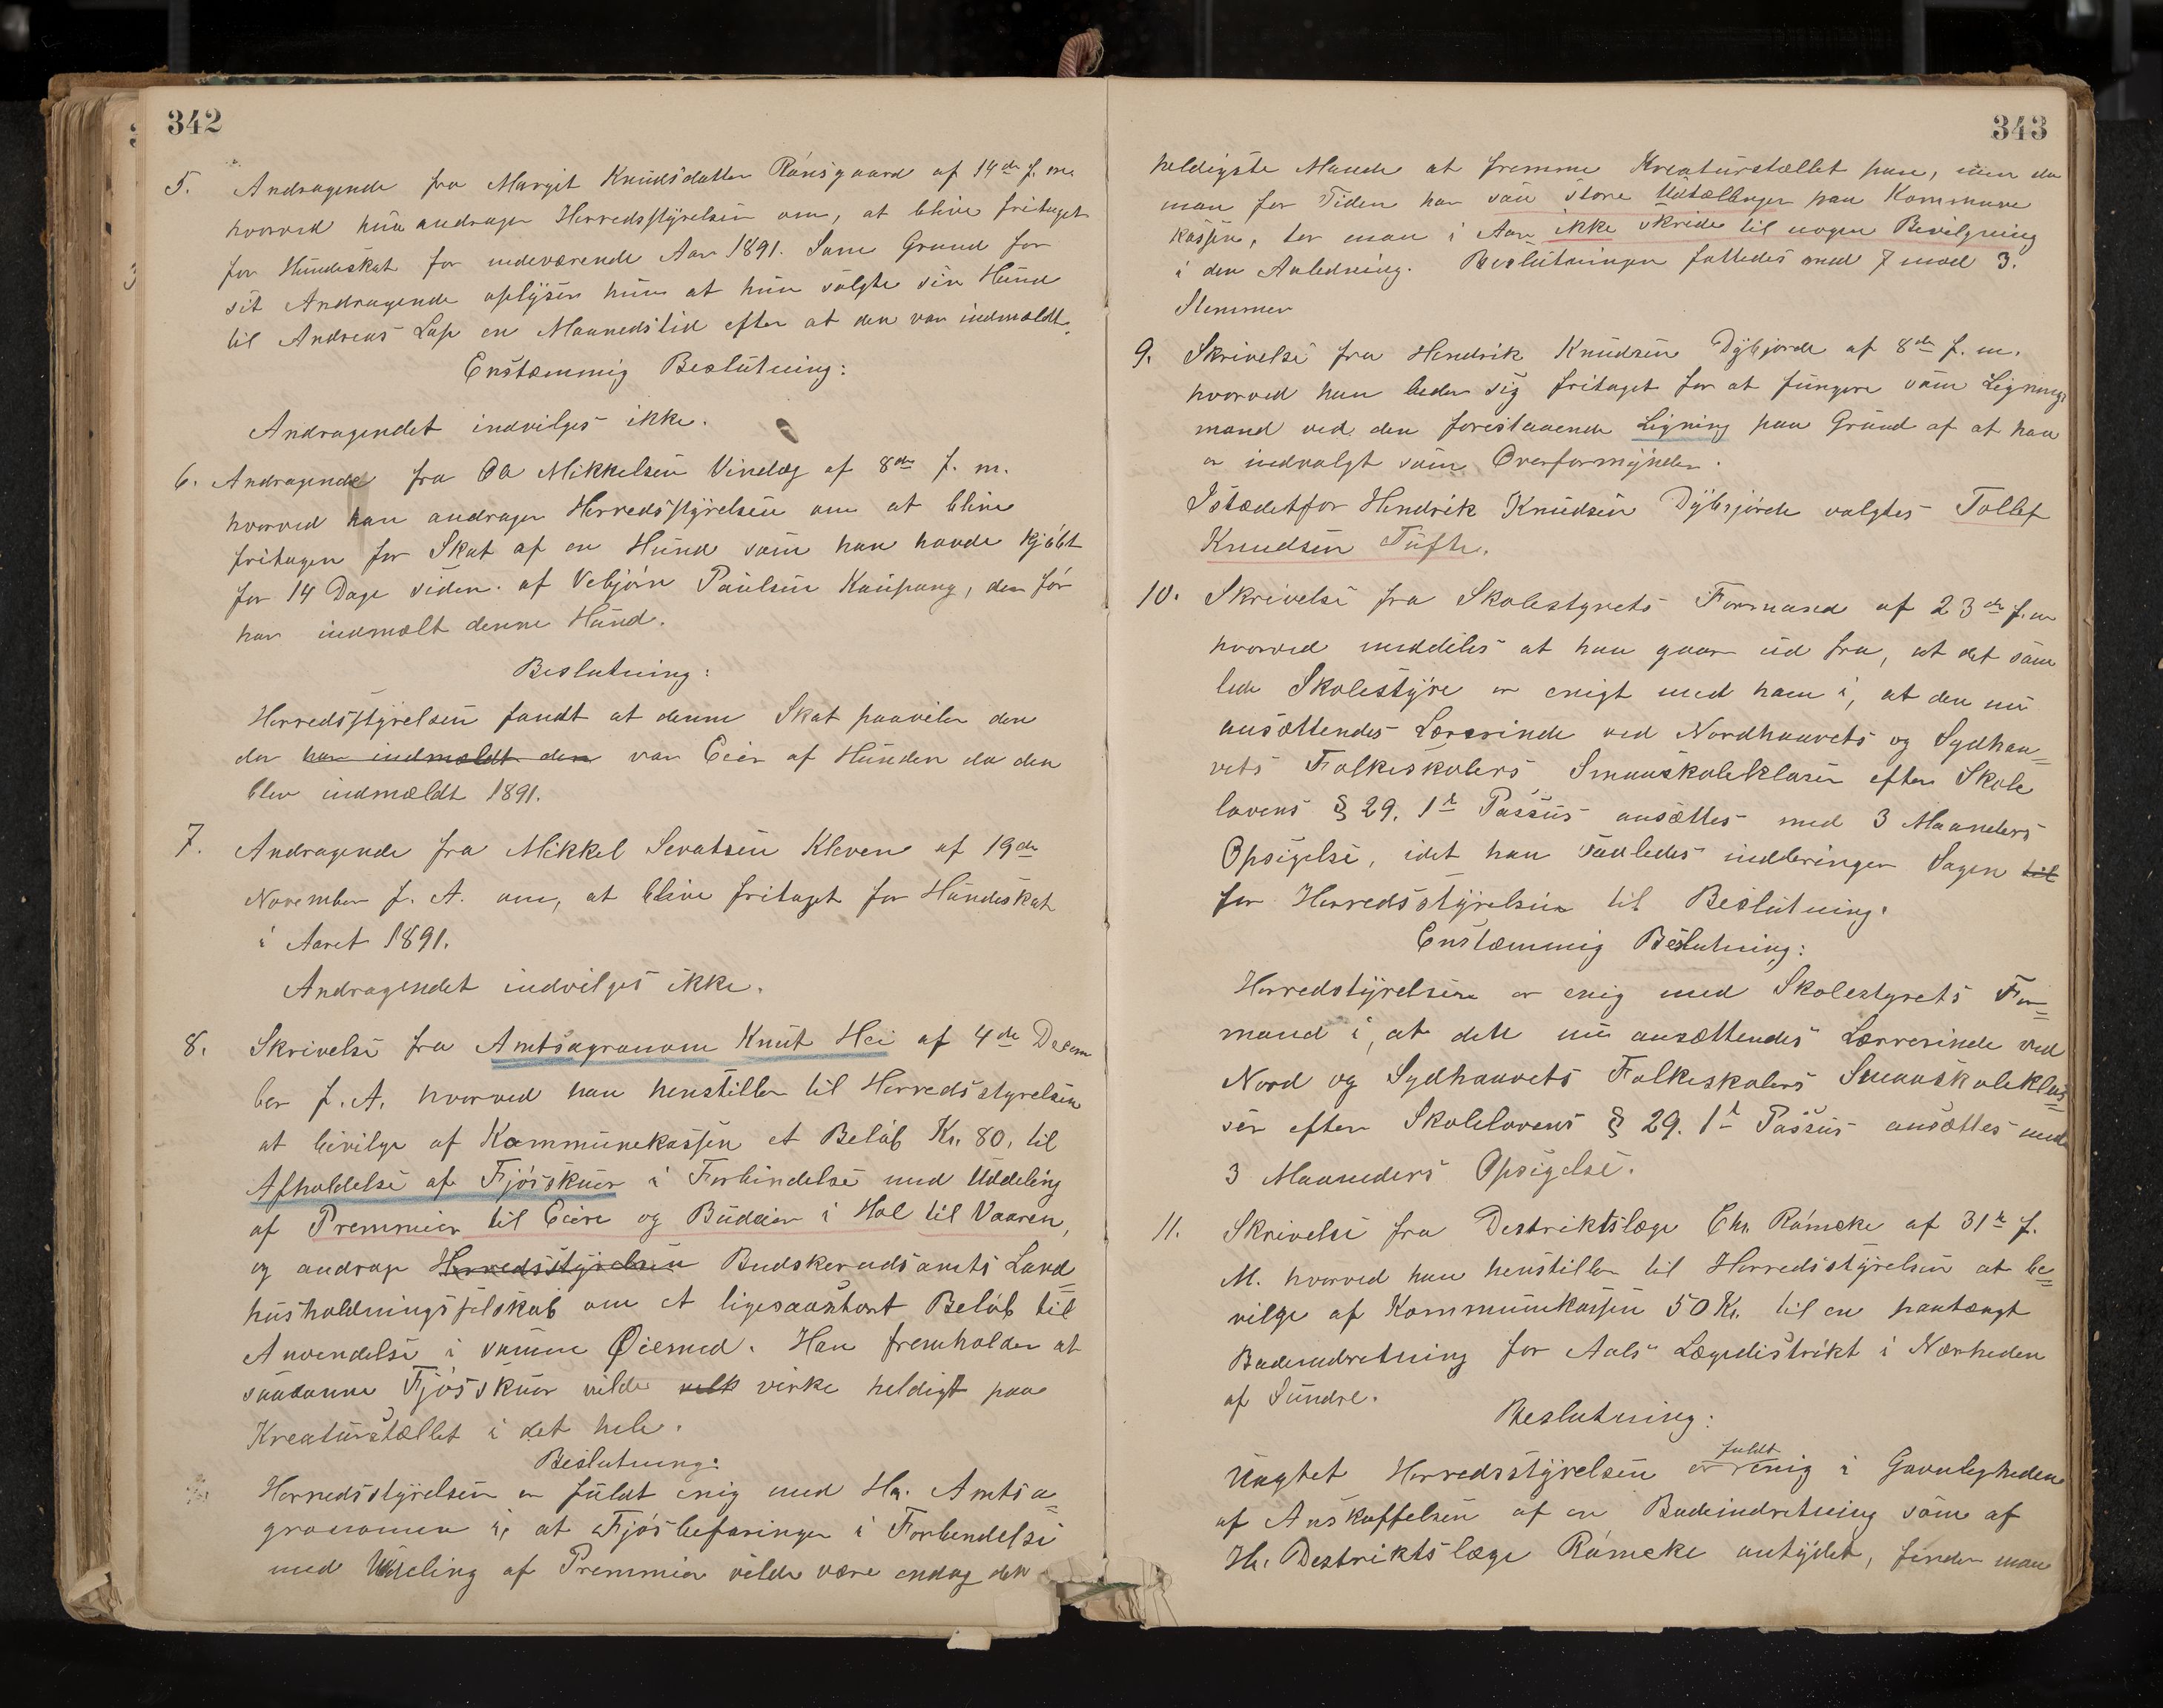 342
5. Andragende fra Margit Knudsdatter Rønsgaard af 14de f. m.
hvorved hun andrager Herredsstyrelsen om, at blive fritaget
for Hundeskat for indeværende Aar 1891. Som Grund for
sit Andragende oplyser hun at hun solgte sin Hund
til Andreas Lap en Maanedstid efter at den var indmældt.
Enstæmmig Beslutning:
Andragendet indvilges ikke.
6. Andragende fra Ola Mikkelsen Vindeg af 8de f. m.
hvorved han andrager Herredsstyrelsen om at blive
fritagen for Skat af en Hund som han havde kjøbt
for 14 Dage siden af Vebjørn Paulsen Kaupang, den før
har indmælt denne Hund.
Beslutning:
Herredsstyrelsen fandt at denne Skat paaviler den
der har indmældt den var Eier af Hunden da den
blev indmældt 1891.
7. Andragende fra Mikkel Sevatsen Kleven af 19de
November f. A. om, at blive fritaget for Hundeskat
i Aaret 1891.
Andragendet indvilges ikke.
8. Skrivelse fra Amtsagronom Knut Hei af 4de Decem
ber f. A. hvorved han henstiller til Herredsstyrelsen
at bevilge af Kommunekassen et Beløb Kr. 80. til
Afholdelse af Fjøsskuer i Forbindelse med Uddeling
af Premmier til Eiere og Budeier i Hol til Vaaren,
og andrage Herredsstyrelsen Buskeruds amts Land=
husholdningsselskab om et ligesaastort Beløb til
Anvendelse i samme Øiemed. Han fremholder at
saadanne Fjøsskuer vilde velk virke heldigt paa
Kreaturstællet i det hele.
Beslutning:
Herredsstyrelsen er fuldt enig med Hr. Amtsa=
gronomen i, at Fjøsbefaringer i Forbindelse
med Uddeling af Premmier vilde være endog den
343
heldigste Maade at fremme Kreaturstællet paa, men da
man for Tiden har saa store Udtællinger paa Kommune
kassen, tør man i Aar ikke skride til nogen Bevilgning
i den Anledning. Beslutningen fattedes med 7 mod 3.
Stemmer
9. Skrivelse fra Hendrik Knudsen Dybsjorde af 8de f. m.
hvorved han beder sig fritaget for at fungere som Lignings
mand ved den forestaaende Ligning paa Grund af at han
er indvalgt som Overformynder.
Istædetfor Hendrik Knudsen Dybsjorde valgtes Tollef
Knudsen Tufte.
10. Skrivelse fra Skolestyrets Formand af 23de f. m
hvorved meddeles at han gaar ud fra, at det sam
lede Skolestyre er enigt med ham i, at den nu
ansættendes Lærerinde ved Nordhaavets og Sydhaa=
vets Folkeskolers Smaaskoleklaser efter Skole
lovens § 29. 1ste Passus ansættes med 3 Maaneders
Opsigelse, idet han saaledes indbringer Sagen til
for Herredsstyrelsen til Beslutning.
Enstæmmig Beslutning:
Herredstyrelsen er enig med Skolestyrets For=
mand i, at dett nu ansættendes Lærerinde ved
Nord og Sydhaavets Folkeskolers Smaaskoleklas=
ser efter Skolelovens § 29. 1ste Passus ansættes med
3 Maaneders Opsigelse.
11. Skrivelse fra Destriktslæge Chr. Rømcke af 31te f.
M. hvorved han henstiller til Herredsstyrelsen at be=
vilge af Kommunekassen 50 Kr. til en paatænkt
Badeindretning for Aals Lægedistrikt i Nærheden
af Sundre.
Beslutning:
Uagtet Herredsstyrelsen er fuldt enig i Gavnligheden
af Anskaffelsen af en Badeindretning som af
Hr. Destriktslæge Rømcke antydet, finder man